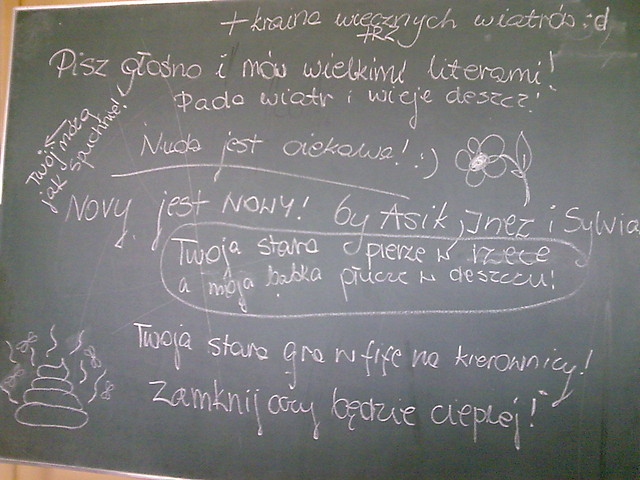 + kraina wiecznych wiatrów :d
+RZ
Pisz głośno i mów wielkimi literami!
Pada wiatr i wieje deszcz!
Twój mózg
jak spuchnie!
Nuda jest ciekawa! :)
NOVY jest NOWY! by Asik, Inez i Sylwia
Twoja stara pierze w rzece
a moja babka płucze w deszczu!
Twoja stara gra w fife na kierownicy!
Zamknij oczy będzie cieplej!